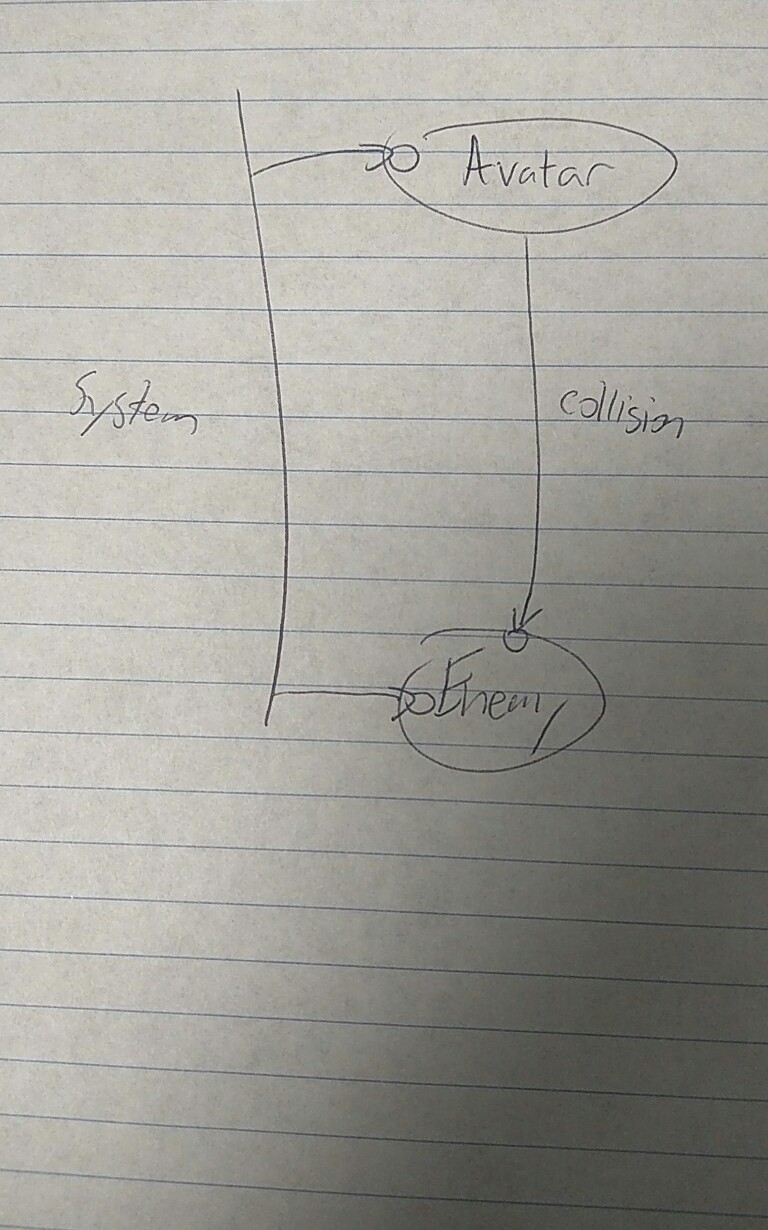 Avatar
System
collision
Enemy